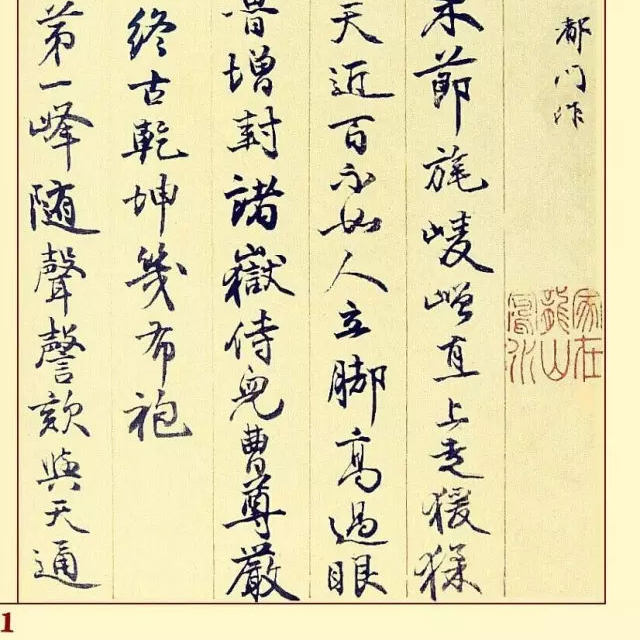 都門作
家在龍山
節旄崚嶒直上走猨猱
天近百不如人立脚高過眼
增封諸嶽侍兒曹尊嚴
終古乾坤幾布袍
第一峰随聲謦欬與天通
1